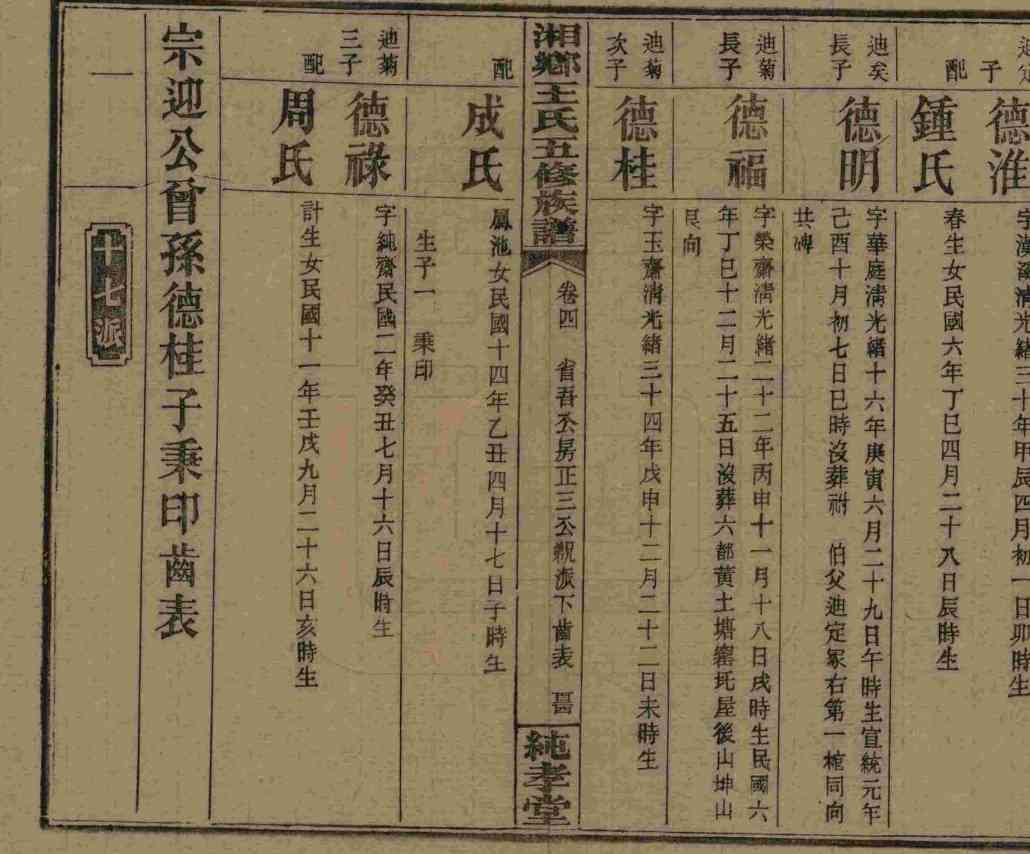 子
德淮
字漢溪清光緒三十年甲辰四月初一日卯時生
配
鍾氏
春生女民國六年丁巳四月二十八日辰時生
迪矣
長子
德明
字華庭清光緒十六年庚寅六月二十九日午時生宣統元年
己酉十月初七日巳時沒葬祔 伯父迪定冢右第一棺同向
共碑
迪菊
長子
德福
字榮齋清光緒二十二年丙申十一月十八日戌時生民國六
年丁巳十二月二十五日沒葬六都黃土塘窰圫屋後山坤山
艮向
迪菊
次子
德桂
字玉齋清光緒三十四年戊申十二月二十二日未時生
湘鄉王氏五修族譜
卷四 省吾公房正三公親派下齒表
純孝堂
配
成氏
鳳池女民國十四年乙丑四月十七日子時生
生子一 秉印
迪菊
三子
德祿
字純齋民國二年癸丑七月十六日辰時生
配
周氏
計生女民國十一年壬戌九月二十六日亥時生
宗迎公曾孫德桂子秉印齒表
十七派